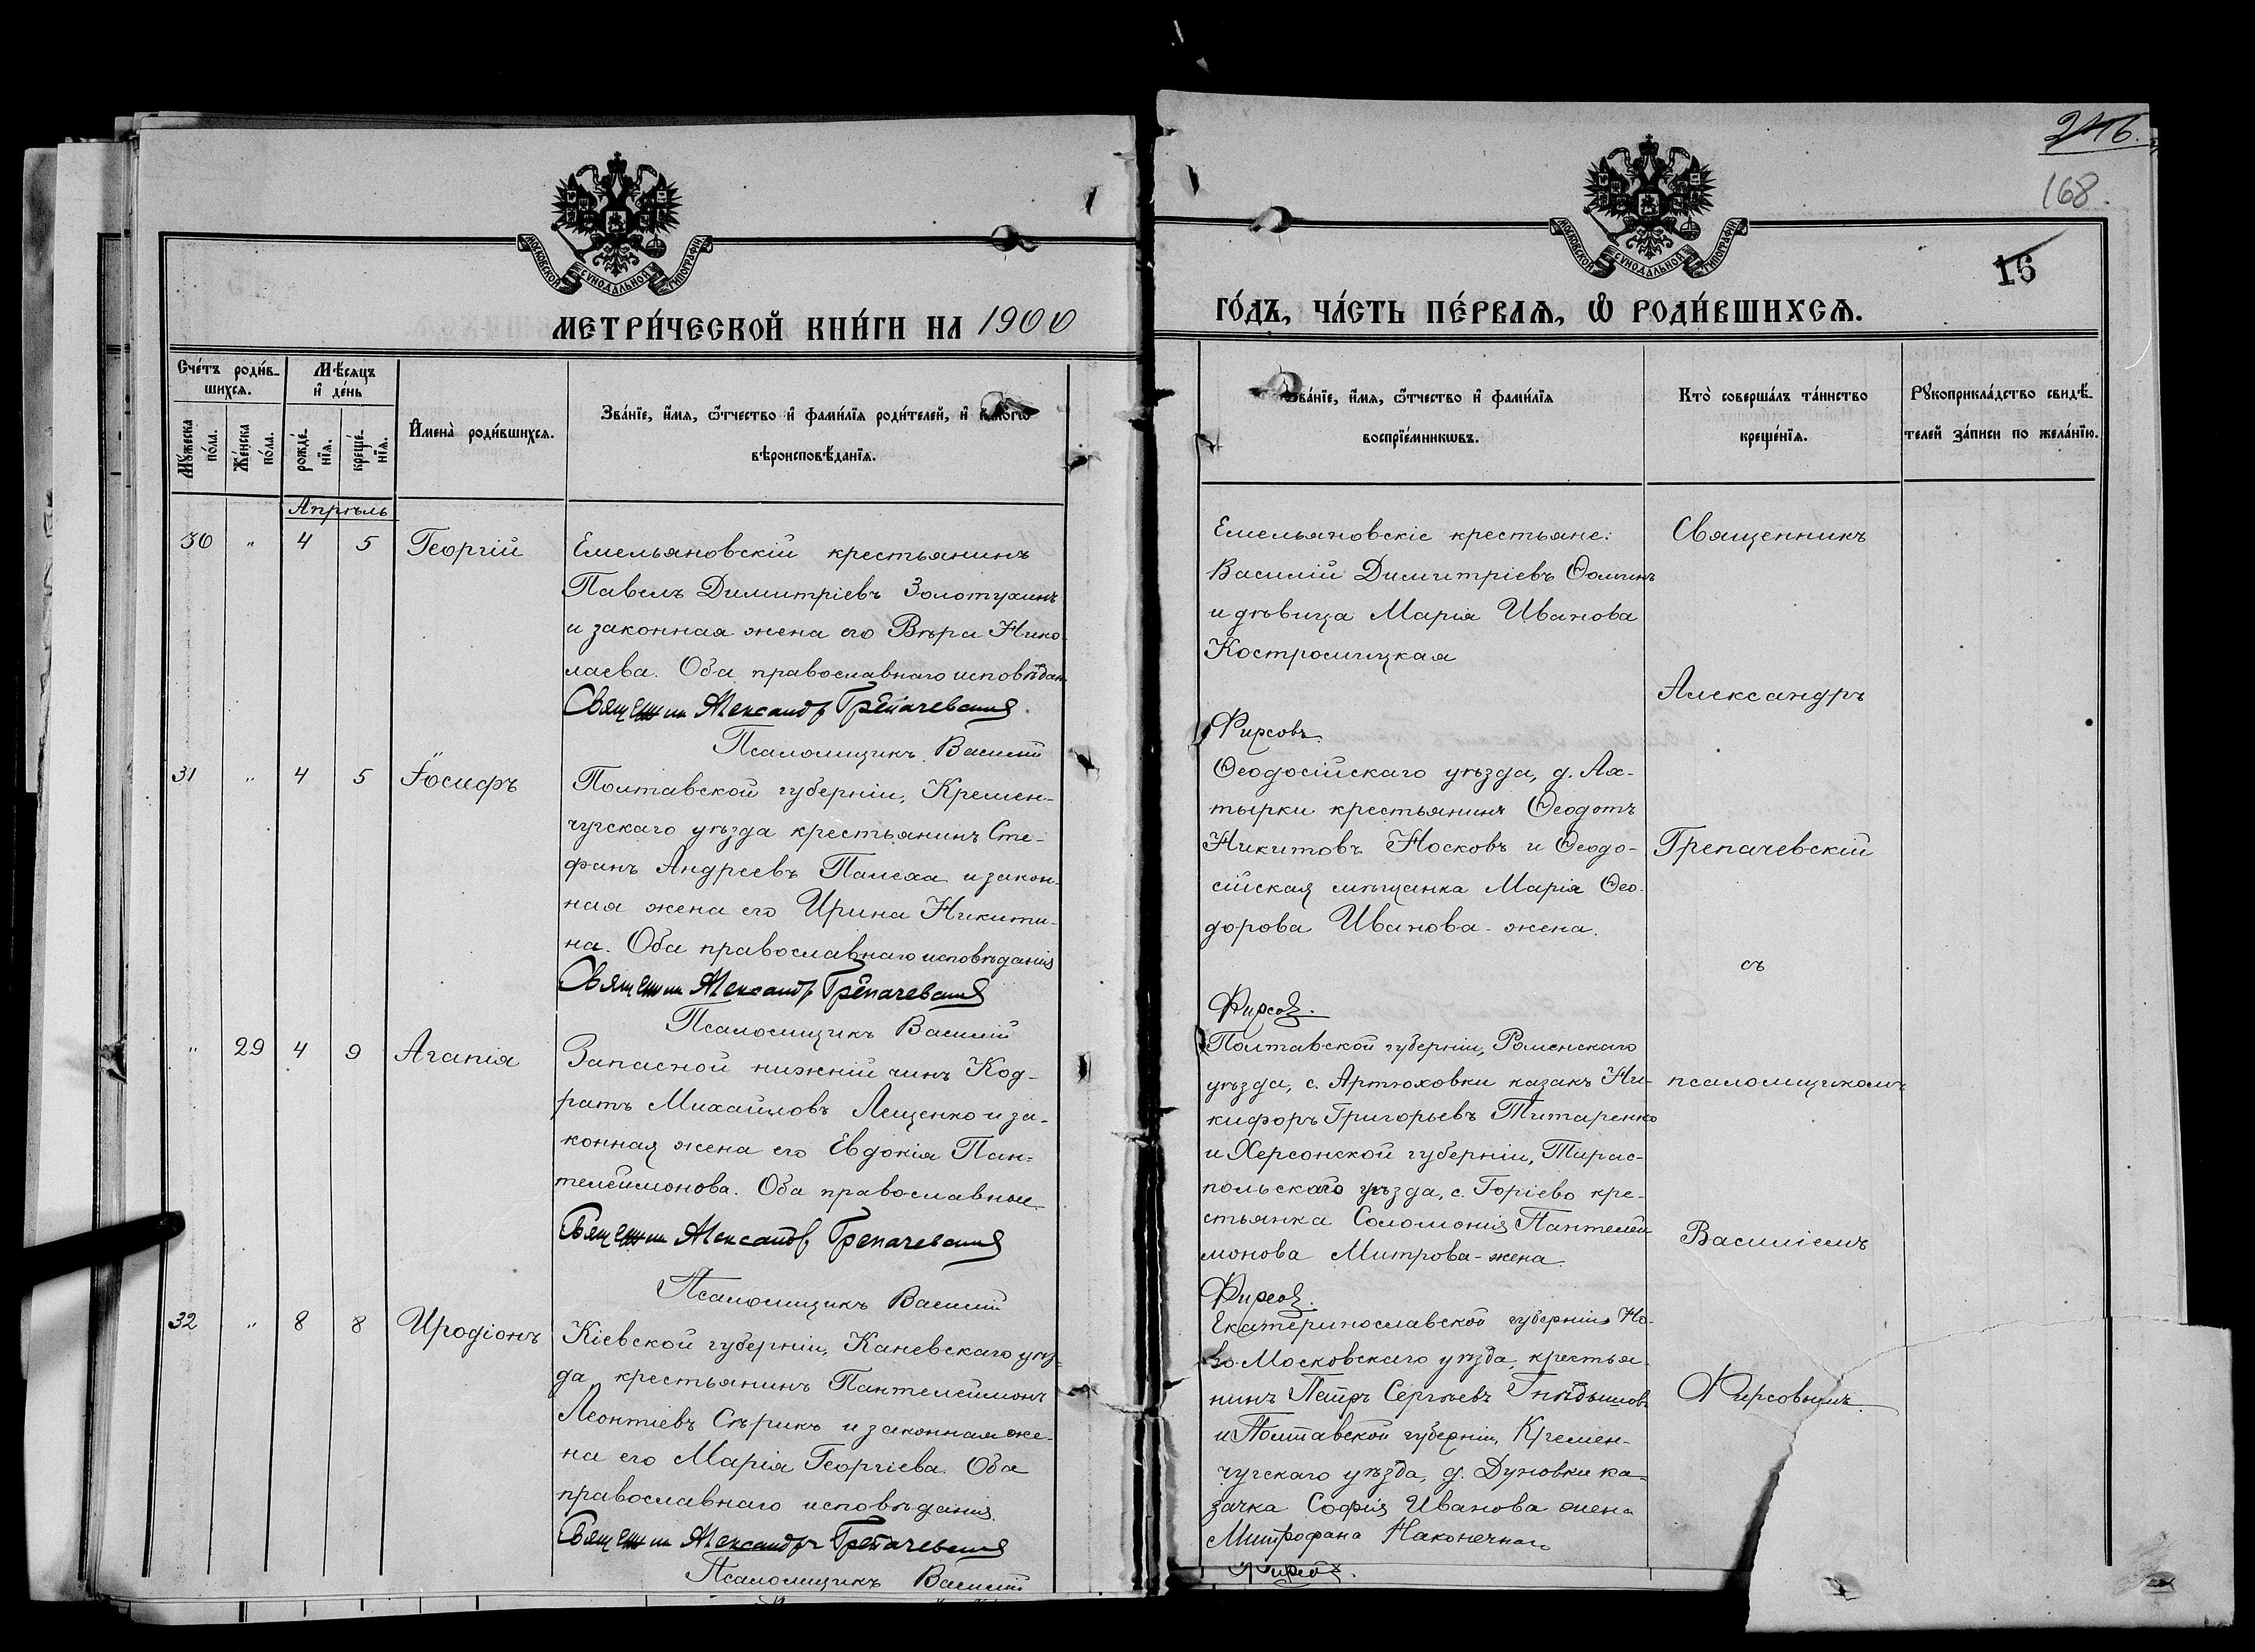 МОСКОВСКОЙ СУНОДАЛЬНОЙ ТИПОГРАФІИ
МЕТРИ́ЧЕСКОЙ КНИ́ГИ НА 1900
Сче́тъ роди́в-
шихсѧ.
Мѣ́сѧцъ
и҆ де́нь
Мꙋ́жеска
по́ла.
Же́нска
по́ла.
рожде́-
нїѧ.
креще́-
нїѧ.
И҆мена̀ роди́вшихсѧ.
Зва́нїе, и҆́мѧ, ѻ҆́тчество и҆ фами́лїѧ роди́телей, и҆
вѣроисповѣ́данїѧ.
Апрѣль
30 " 4 5 Георгій
Емельяновскій крестьянинъ
Павелъ Димитріевъ Золотухинъ
и законная жена его Вѣра Нико-
лаева. Оба православнаго исповѣдан.
Священник Александр Грепачевский
Псаломщикъ Василій
31 " 4 5 Іосифъ
Полтавской губерніи, Кремен-
чугскаго уѣзда крестьянинъ Сте-
фанъ Андреевъ Палеха и закон-
ная жена его Ирина Никити-
на. Оба православнаго исповѣданія
Священник Александр Грепачевский
Псаломщикъ Василій
" 29 4 9 Агапія
Запасной нижній чинъ Код-
ратъ Михайловъ Лещенко и за-
конная жена его Евдокія Пан-
телеймонова. Оба православные
Священник Александр Грепачевский
Псаломщикъ Василій
32 " 8 8 Иродіонъ
Кіевской губерніи, Каневскаго уѣз-
да крестьянинъ Пантелеймонъ
Леонтіевъ Сѣрикъ и законная же-
на его Марія Георгіева. Оба
православнаго исповѣданія.
Священник Александръ Грепачевский
Псаломщикъ Василій
246.
168.
16
МОСКОВСКОЙ СУНОДАЛЬНОЙ ТИПОГРАФІИ
ГО́ДЪ, ЧА́СТЬ ПЕ́РВАѦ, Ѡ҆ РОДИ́ВШИХСѦ.
Зва́нїе, и҆́мѧ, ѻ҆́тчество и҆ фами́лїѧ
воспрїе́мникѡвъ.
Кто̀ соверша́лъ та́инство
креще́нїѧ.
Рꙋкоприкла́дство свидѣ́-
телей за́писи по жела́нїю.
Емельяновскіе крестьяне:
Василій Димитріевъ Ѳоминъ
и дѣвица Марія Иванова
Костромицкая
Фирсовъ.
Ѳеодосійскаго уѣзда, д. Ах-
тырки крестьянинъ Ѳеодотъ
Никитовъ Носковъ и Ѳеодо-
сійская мѣщанка Марія Ѳео-
дорова Иванова-жена.
Фирсов.
Полтавской губерніи, Роменскаго
уѣзда, с. Артюховки казакъ Ни-
кифоръ Григорьевъ Титаренко
и Херсонской губерніи, Тирас-
польскаго уѣзда, с. Горіево кре-
стьянка Соломонія Пантелей
монова Митрова-жена.
Фирсов.
Екатеринославской губерніи Но-
во-Московскаго уѣзда, крестья-
нинъ Петръ Сергѣевъ Гнѣдышовъ
и Полтавской губерніи, Кремен-
чугскаго уѣзда, д. Духовки ка-
зачка Софія Иванова жена
Митрофана Наконечнаго
Фирсов.
Священникъ
Александръ
Грепачевскій
съ
псаломщикомъ
Василіемъ
Фирсовымъ.